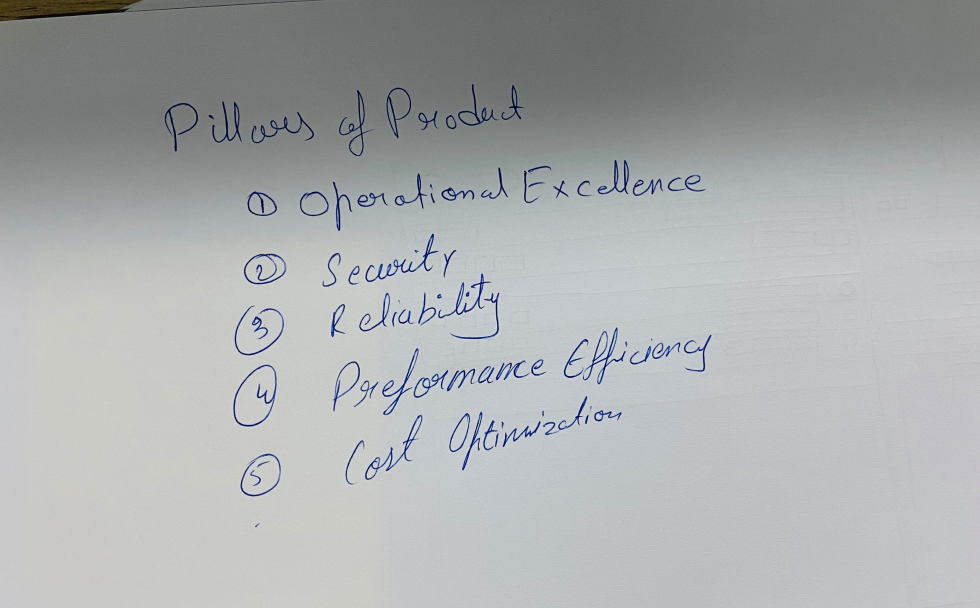 Pillars of Product
① Operational Excellence
② Security
③ Reliability
④ Preformance Efficiency
⑤ Cost Optimization